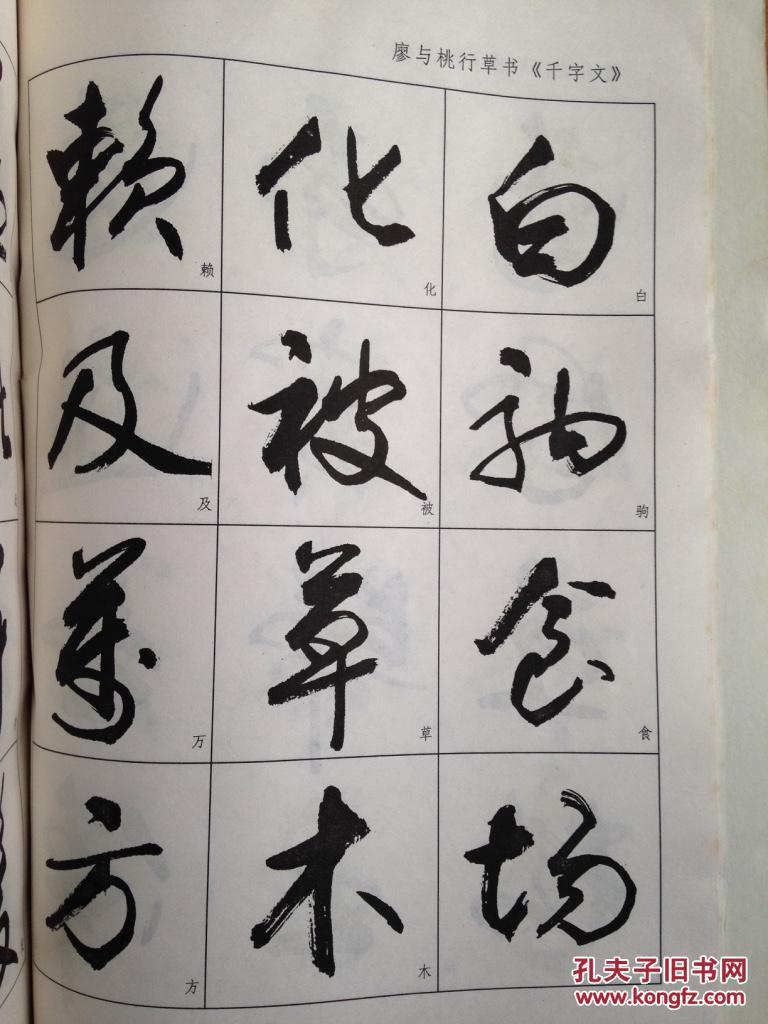 廖与桃行草书《千字文》
白驹食场
白
驹
食
化被草木
化
被
草
木
赖及萬方
赖
及
万
方
孔夫子旧书网
www.kongfz.com